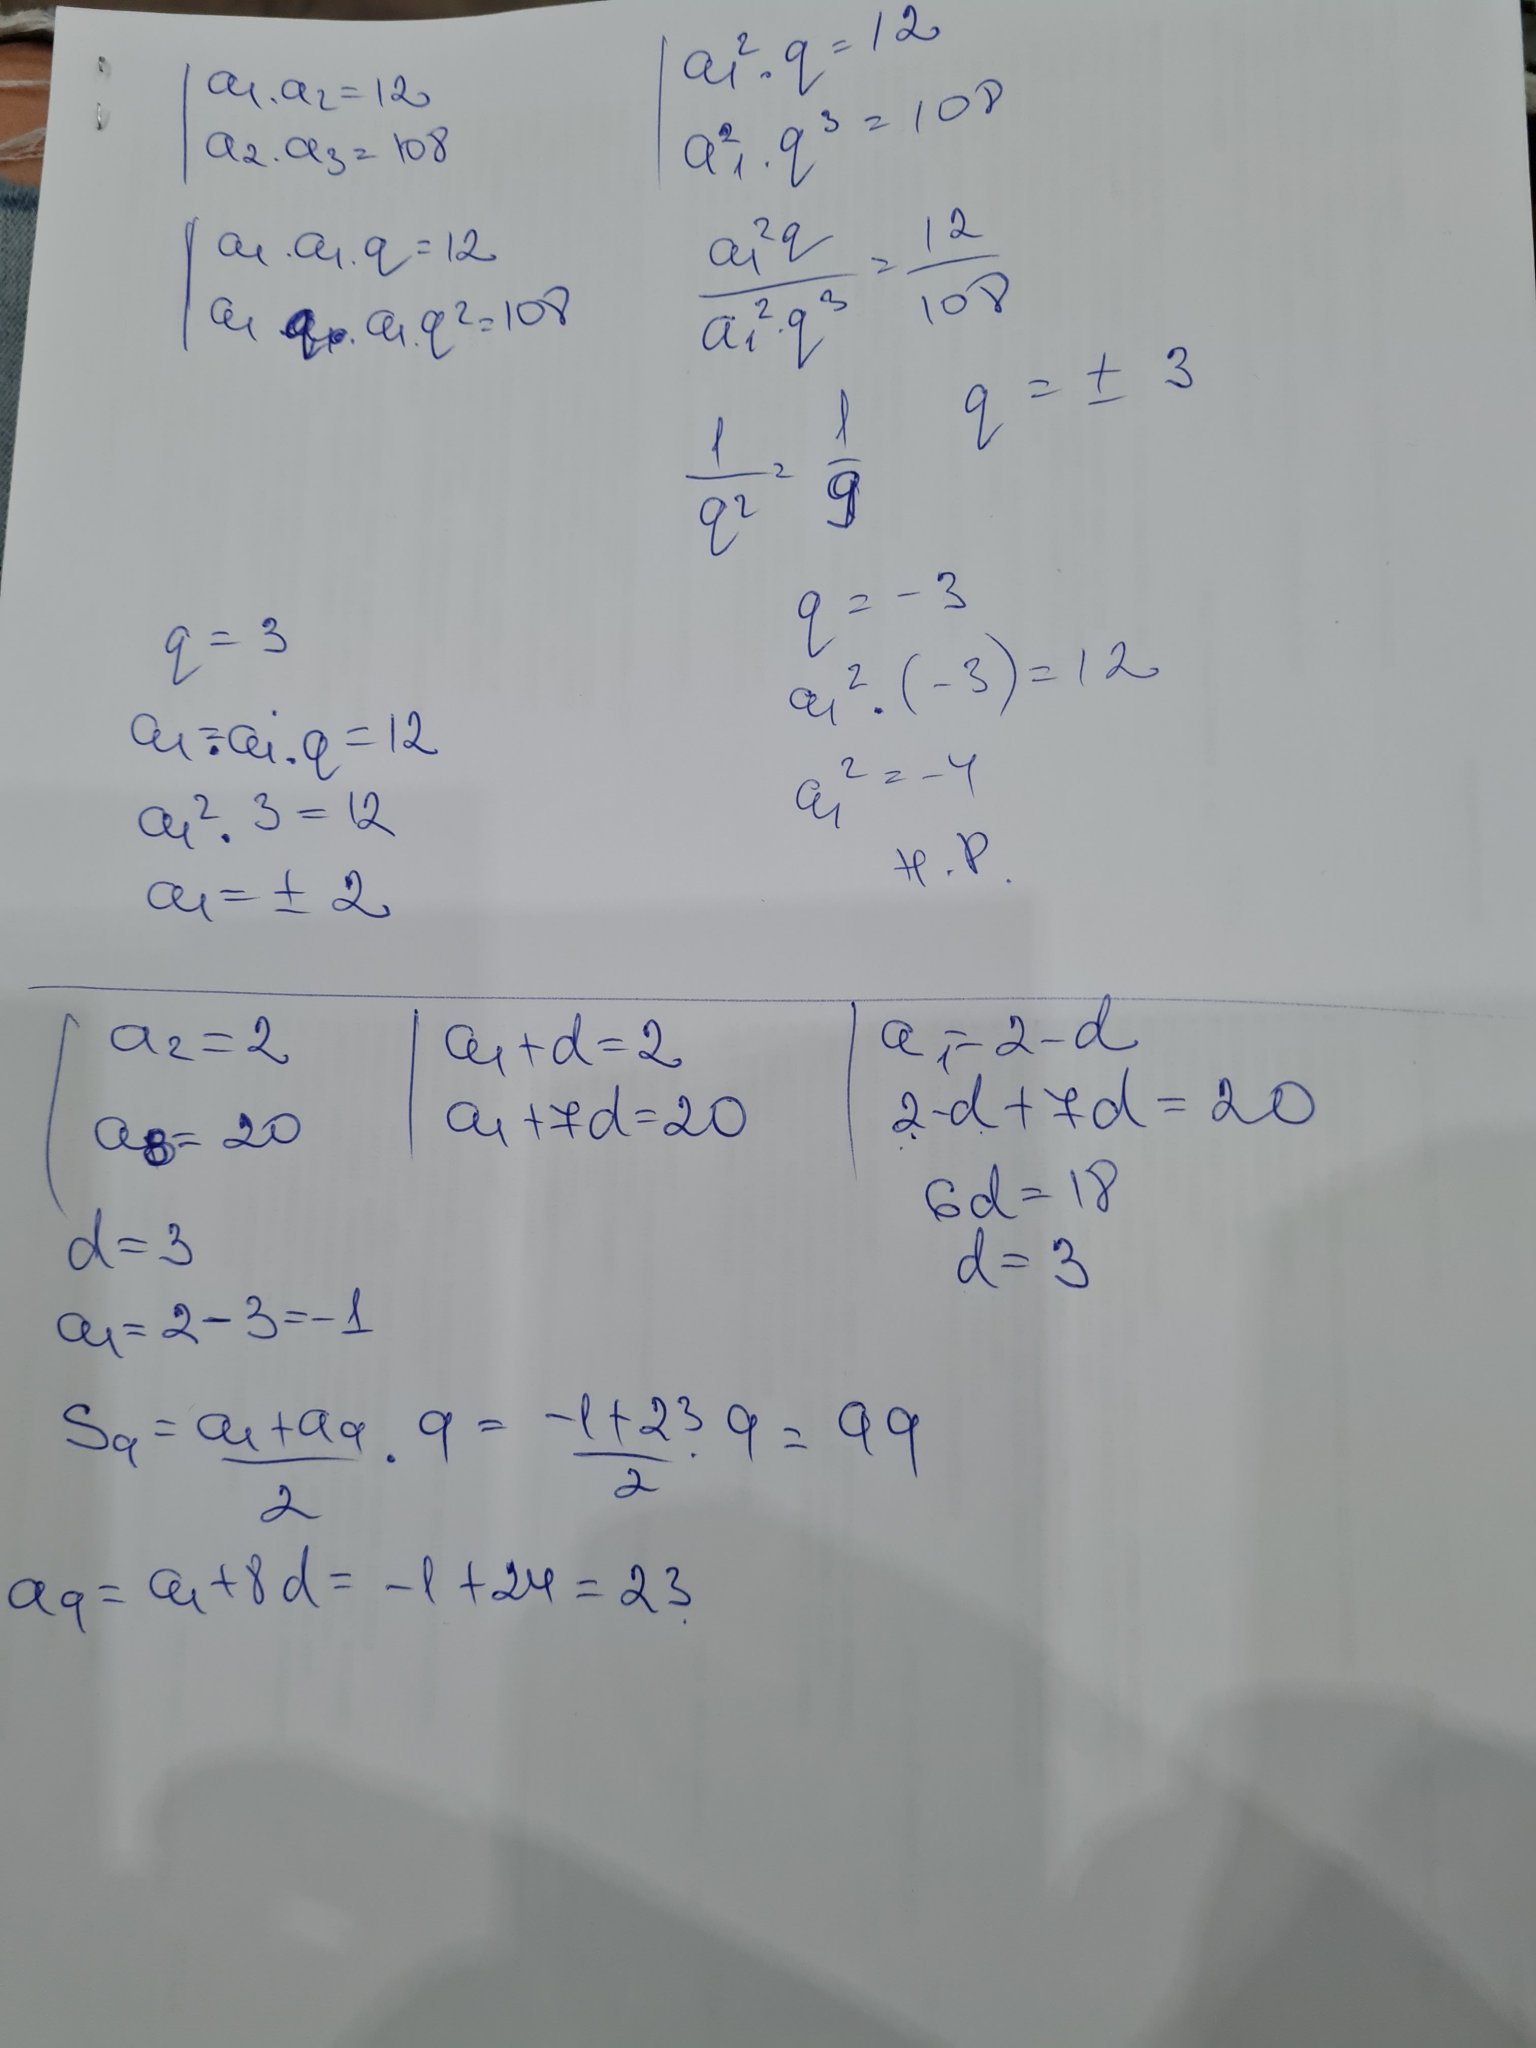 a₁.a₂=12
a₂.a₃=108
a₁.a₁.q=12
a₁.q.a₁.q²=108
a₁².q=12
a₁².q³=108
a₁²q/a₁².q³=12/108
1/q²=1/9
q=±3
q=3
a₁.a₁.q=12
a₁².3=12
a₁=±2
q=-3
a₁².(-3)=12
a₁²=-4
Н.Р.
a₂=2
a₈=20
a₁+d=2
a₁+7d=20
a₁=2-d
2-d+7d=20
6d=18
d=3
d=3
a₁=2-3=-1
S₉=a₁+a₉/2.9=-1+23/2.9=99
a₉=a₁+8d=-1+24=23